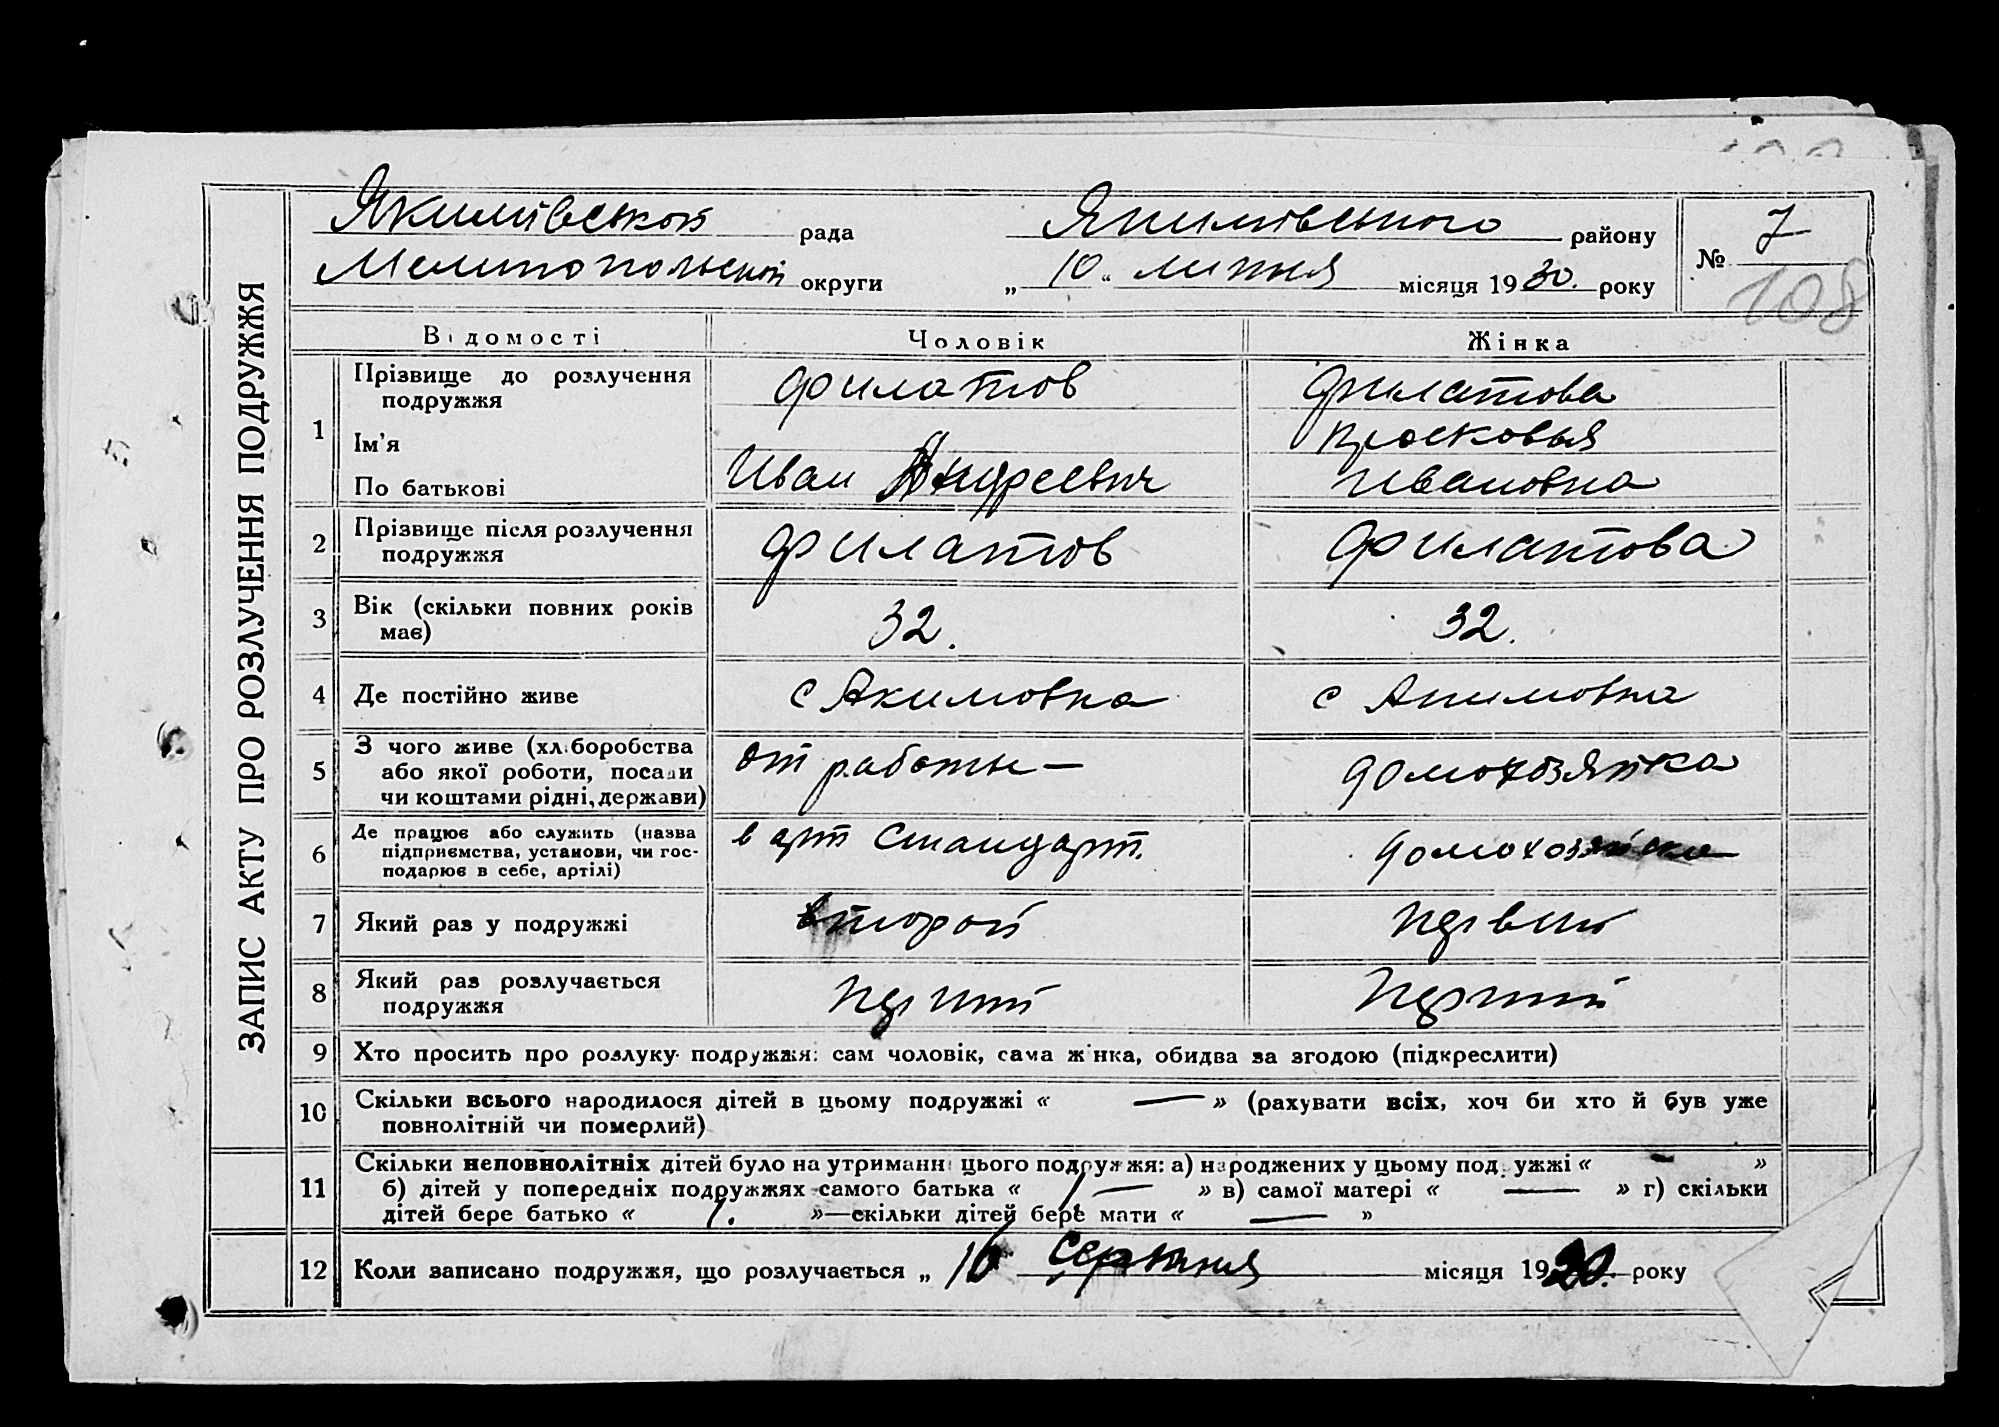 ЗАПИС АКТУ ПРО РОЗЛУЧЕННЯ ПОДРУЖЖЯ
Якимівської рада Якимівського району
Мелитопольської округи „10“ липня місяця 1930. року
№ 7
108
Відомості Чоловік Жінка
1 Прізвище до розлучення подружжя Филатов Филатова
Ім'я Иван Прасковья
По батькові Андреевич Ивановна
2 Прізвище після розлучення подружжя Филатов Филатова
3 Вік (скільки повних років має) 32. 32.
4 Де постійно живе с Акимовка с Акимовка
5 З чого живе (хліборобства або якої роботи, посади чи коштами рідні, держави) от работы — домохозяйка
6 Де працює або служить (назва підприємства, установи, чи господарює в себе, артілі) в арт Стандарт. домохозяйка
7 Який раз у подружжі второй
8 Який раз розлучається подружжя
9 Хто просить про розлуку подружжя: сам чоловік, сама жінка, обидва за згодою (підкреслити)
10 Скільки всього народилося дітей в цьому подружжі « — » (рахувати всіх, хоч би хто й був уже
повнолітній чи померлий)
11 Скільки неповнолітніх дітей було на утриманні цього подружжя: а) народжених у цьому подружжі « — »
б) дітей у попередніх подружжях самого батька « 1 — » в) самої матері « — » г) скільки
дітей бере батько « 1. »—скільки дітей бере мати « — »
12 Коли записано подружжя, що розлучається „ 16 Серпня місяця 19 року